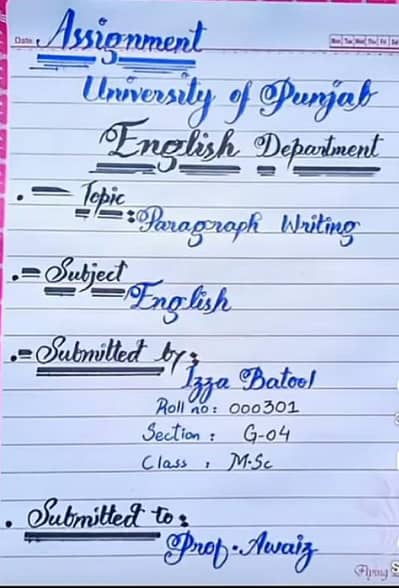 Date:
Assignment
Mon Tue Wed Thu Fri Sat
University of Punjab
English Department
Topic
:Paragraph Writing
Subject
English
Submitted by:
Izza Batool
Roll no: 000301
Section : G-04
Class : M.Sc
Submitted to:
Prof. Awaiz
Flying